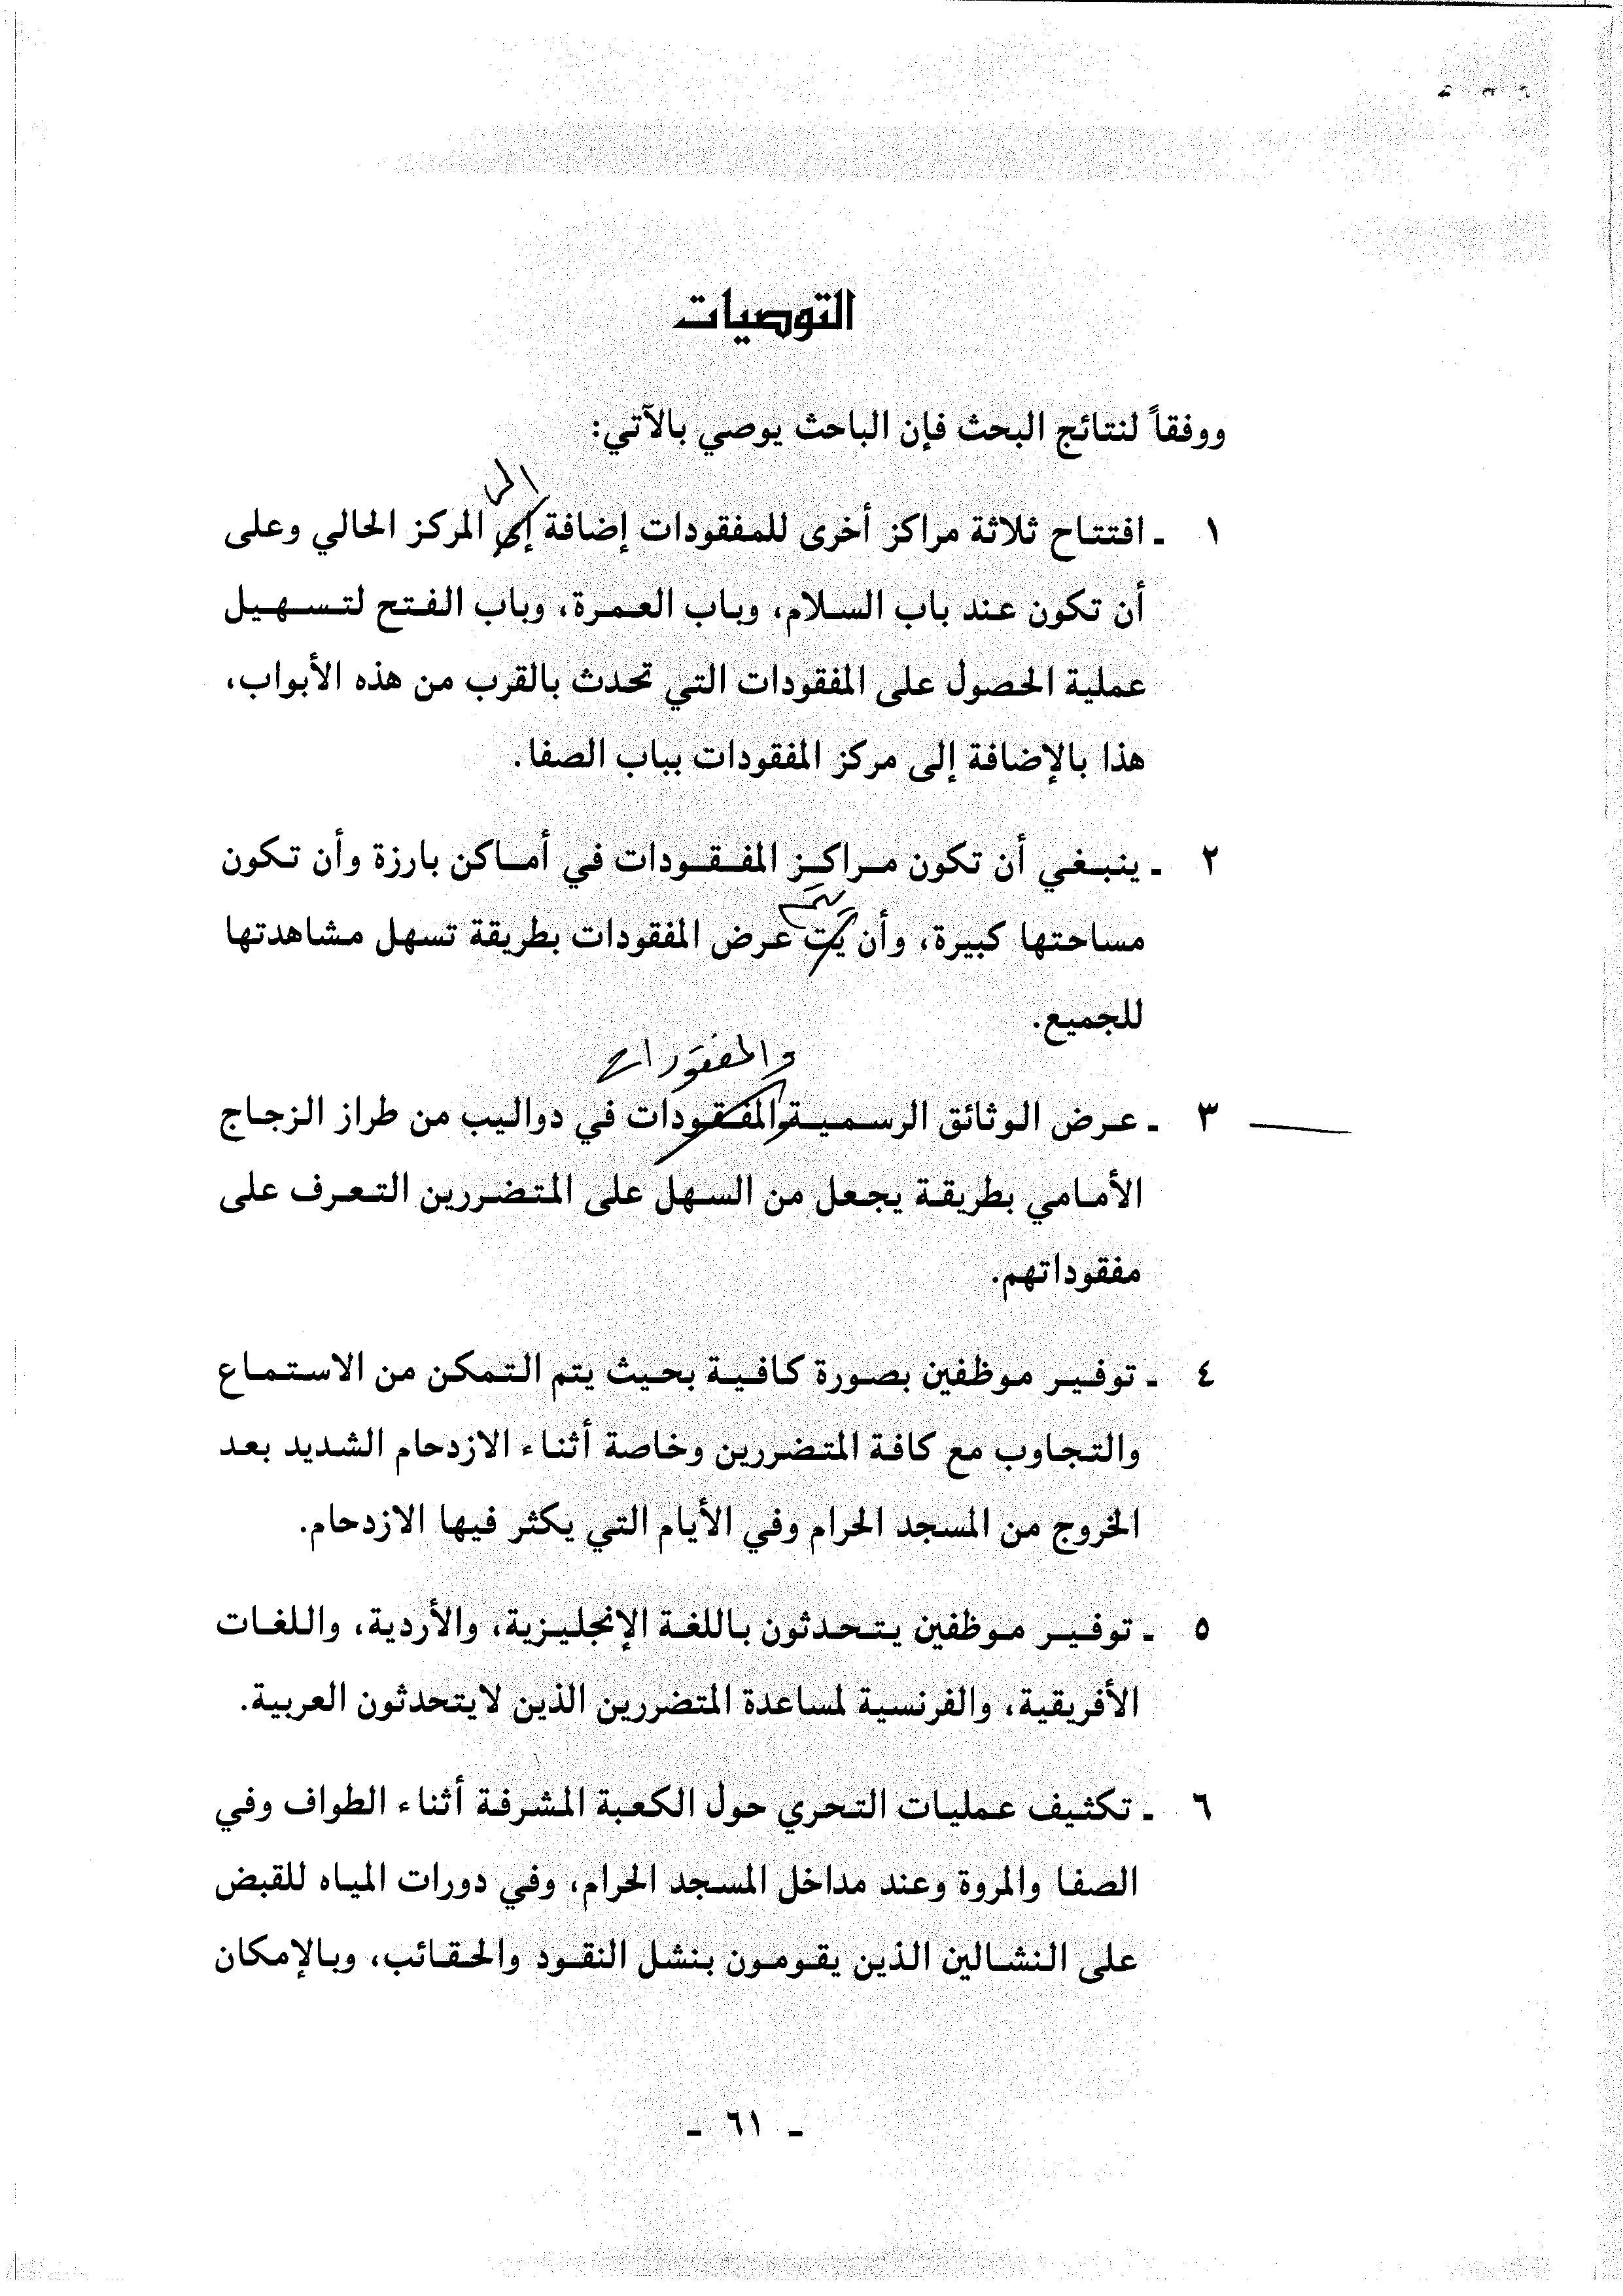 التوصيات
ووفقاً لنتائج البحث فإن الباحث يوصي بالآتي:
إلى
١ ـ افتتاح ثلاثة مراكز أخرى للمفقودات إضافة إلى المركز الحالي وعلى
أن تكون عند باب السلام، وباب العمرة، وباب الفتح لتسهيل
عملية الحصول على المفقودات التي تحدث بالقرب من هذه الأبواب،
هذا بالإضافة إلى مركز المفقودات بباب الصفا.
٢ ـ ينبغي أن تكون مراكز المفقودات في أماكن بارزة وأن تكون
يتم
مساحتها كبيرة، وأن يت عرض المفقودات بطريقة تسهل مشاهدتها
للجميع.
والمفقودات
٣ ـ عرض الوثائق الرسمية والمفقودات في دواليب من طراز الزجاج
الأمامي بطريقة يجعل من السهل على المتضررين التعرف على
مفقوداتهم.
٤ ـ توفير موظفين بصورة كافية بحيث يتم التمكن من الاستماع
والتجاوب مع كافة المتضررين وخاصة أثناء الازدحام الشديد بعد
الخروج من المسجد الحرام وفي الأيام التي يكثر فيها الازدحام.
٥ ـ توفير موظفين يتحدثون باللغة الإنجليزية، والأردية، واللغات
الأفريقية، والفرنسية لمساعدة المتضررين الذين لايتحدثون العربية.
٦ ـ تكثيف عمليات التحري حول الكعبة المشرفة أثناء الطواف وفي
الصفا والمروة وعند مداخل المسجد الحرام، وفي دورات المياه للقبض
على النشالين الذين يقومون بنشل النقود والحقائب، وبالإمكان
ـ ٦١ ـ